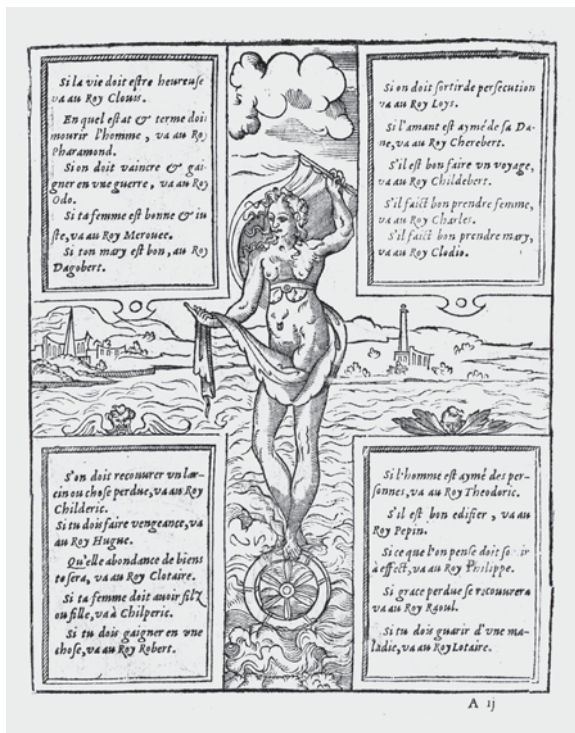 Si la vie doit eſtre heureuſe
va au Roy Clouis.
En quel eſtat & terme doit
mourir l'homme, va au Roy
Pharamond.
Si on doit vaincre & gai-
gner en vne guerre, va au Roy
Odo.
Si ta femme eſt bonne & iu
ſte, va au Roy Merouee.
Si ton mary eſt bon, au Roy
Dagobert.
Si on doit ſortir de perſecution
va au Roy Loys.
Si l'amant eſt aymé de ſa Da-
me, va au Roy Cherebert.
S'il eſt bon faire vn voyage,
va au Roy Childebert.
S'il faict bon prendre femme,
va au Roy Charles.
S'il faict bon prendre mary,
va au Roy Clodio.
S'on doit recouurer vn lar-
cin ou choſe perdue, va au Roy
Childeric.
Si tu dois faire vengeance, va
au Roy Hugue.
Qu'elle abondance de biens
te ſera, va au Roy Clotaire.
Si ta femme doit auoir filz
ou fille, va à Chilperic.
Si tu dois gaigner en vne
choſe, va au Roy Robert.
Si l'homme eſt aymé des per-
ſonnes, va au Roy Theodoric.
S'il eſt bon edifier, va au
Roy Pepin.
Si ce que l'on penſe doit
à effect, va au Roy Philippe.
Si grace perdue ſe recouurera
va au Roy Raoul.
Si tu dois guarir d'vne ma-
ladie, va au Roy Lotaire.
A ij